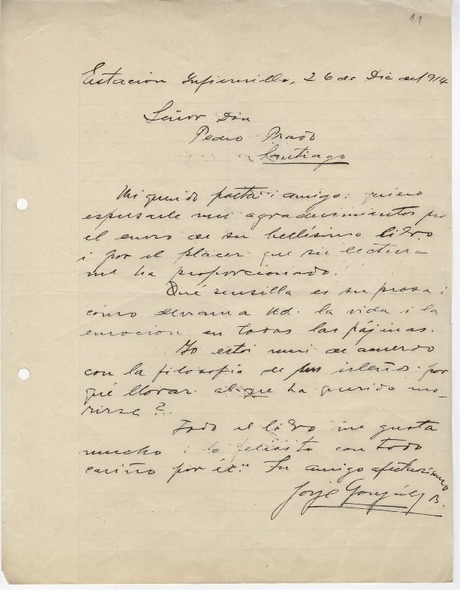 11
Estación Infiernillo, 26 de Dic del 914.
Señor Don
Pedro Prado
Santiago
Mi querido poeta i amigo: quiero
espresarle mis agradecimientos por
el envío de su bellísimo libro
i por el placer que su lectura
me ha proporcionado.
Qué sencilla es su prosa i
cómo derrama Ud. la vida i la
emoción en todas las pájinas.
Yo estoi mui de acuerdo
con la filosofía de sus isleños: por
qué llorar al que ha querido mo-
rirse?
Todo el libro me gusta
mucho i lo felicito con todo
cariño por él. Su amigo afectísimo
Jorje González B.